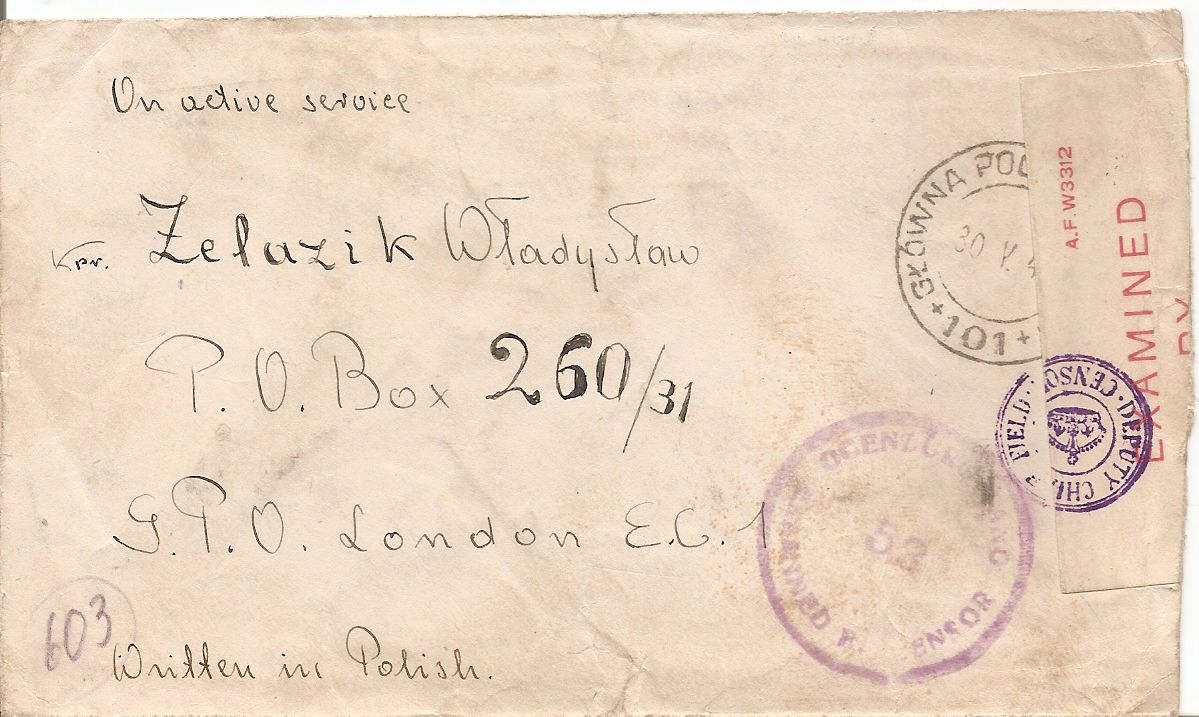 On active service
Kpr. Żelazik Władysław
P. O. Box 260/31
G.P.O. London E.C. 1
Written in Polish.
603
+ GŁÓWNA POL
30 V. 4
+ 101 +
A.F. W3312
EXAMINED
BY
DEPUTY CHIEF FIELD CENSOR
OCENZUROWANO
53
EXAMINED BY CENSOR